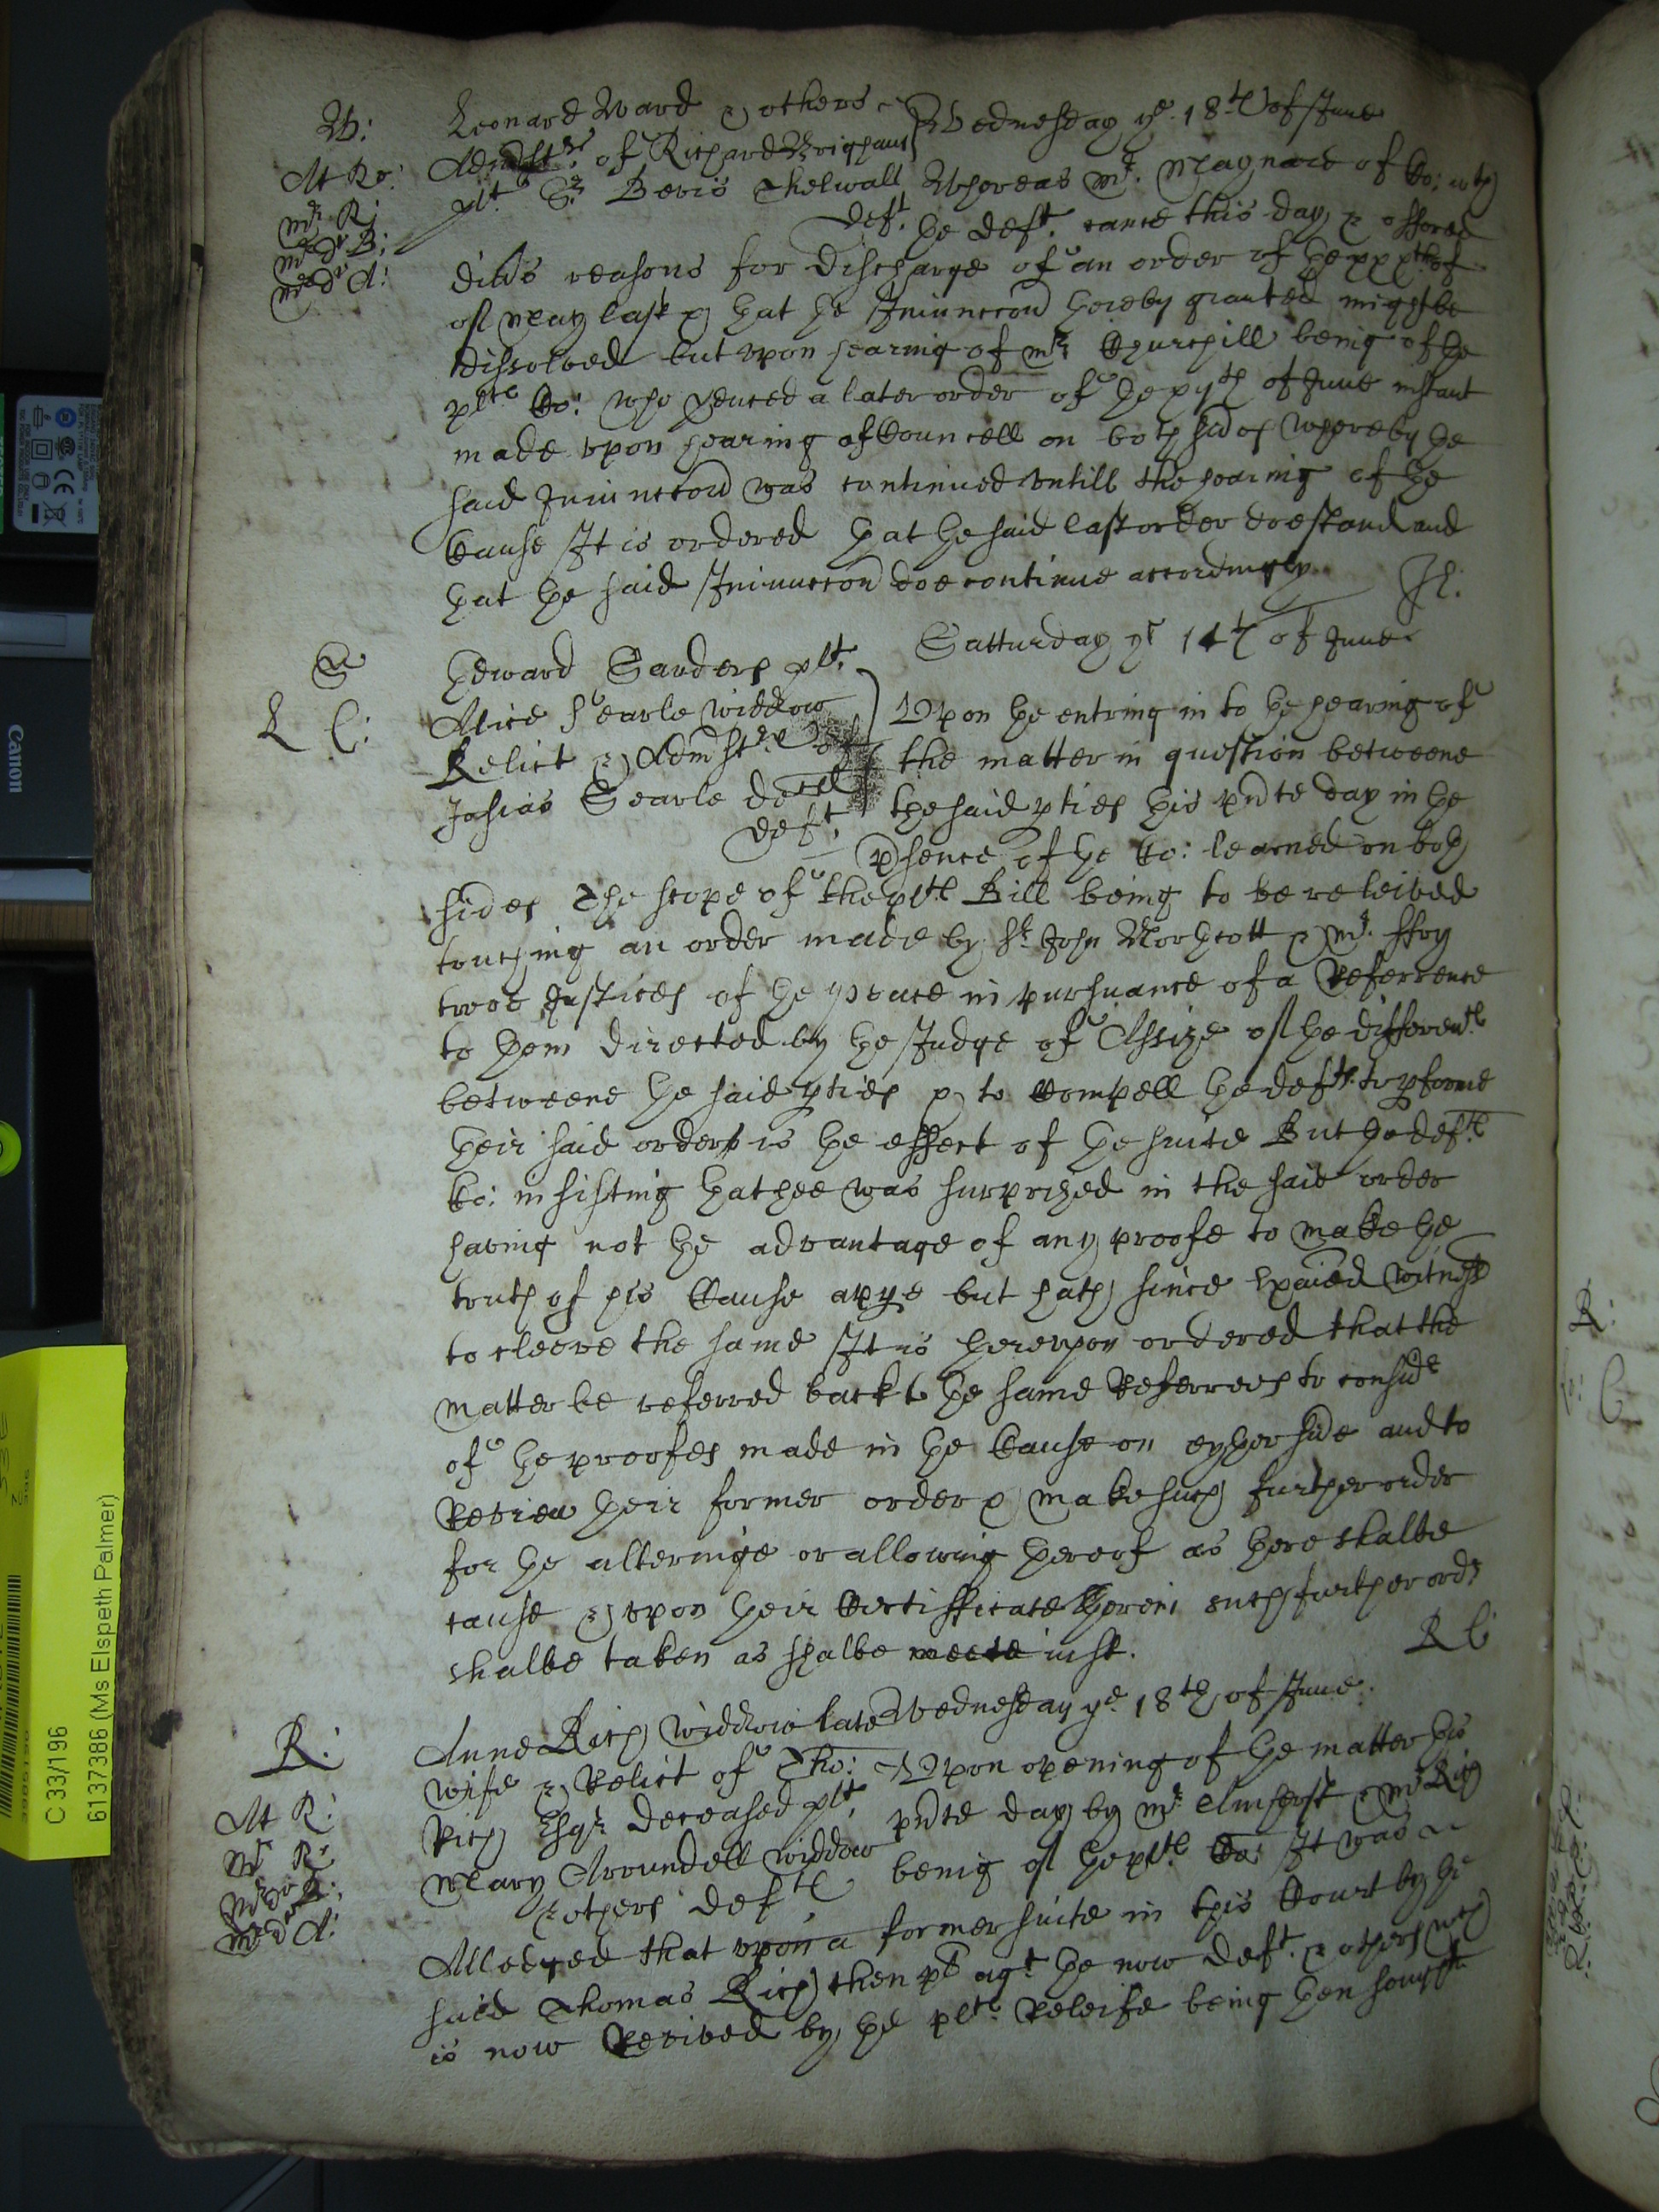 W:
At Ro:
Mr R:
Mr d B:
Mr d A:
Leonard Ward & others
Admstrs of Richard Brigham
plt Sr Bevis Thelwall
deft
Wednesday ye 18th of June
Whereas Mr Maynard of Co: wth
the deft came this day & offered
divs reasons for discharge of an order of the xxxth of
of May last & that the Iniunccon thereby granted might be
dissolved but vpon hearing of Mr Churchill being of the
plts Co: who shewed a later order of the of June instant
made vpon hearing of Councell on both sides whereby the
said Iniunccon was continued vntill the hearing of the
Cause It is ordered that the said last order doe stand and
that the said Iniunccon doe continue accordingly
S
L C:
Edward Sanders plt
Alice Searle widdow
Relict & Admstrx of
Josias Searle decd
deft
Satturday ye 14th of June
Vpon the entring in to the hearing of
the matter in question betweene
the said pties this pnte day in the
psence of the Co: learned on both
sides The scope of the plts Bill being to be releived
touching an order made by Sr John Northcott & Mr ffry
twoe Justices of the peace in pursuance of a Referrence
to them directed by the Judge of Assize of the differents
betweene the said pties & to Compell the defts to pforme
their said order is the effect of the suite But the defts
Co: insisting that hee was surprized in the said order
having not the advantage of any proofe to make the
truth of his Cause but hath since witnes
to cleere the same It is herevpon ordered that the
matter be referred back to the same Referrees to consider
of the proofes made in the Cause on eyther side and to
Review their former order & make such further order
for the alteringe or allowing thereof as there shalbe
cause & vpon their Certifficate therein such further ordr
shalbe taken as shalbe meete iust.
R C
R:
At R:
Mr R:
Mr d B:
Mr d A:
Anne Rich widdow late
wife & Relict of Tho:
Rich Esqr deceased plt
Mary Arrundell widdow
& others defts
Wednesday ye 18th of June
Vpon opening of the matter this
pnte day by Mr Elmherst & Mr Rich
being of the plts Co: It was
Alledged that vpon a former suite in this Court by the
said Thomas Rich then plt agt the now deft & others wch
is now Revived by the plt Releife being then sought
C 33/196
6137386 (Ms Elspeth Palmer)
Canon